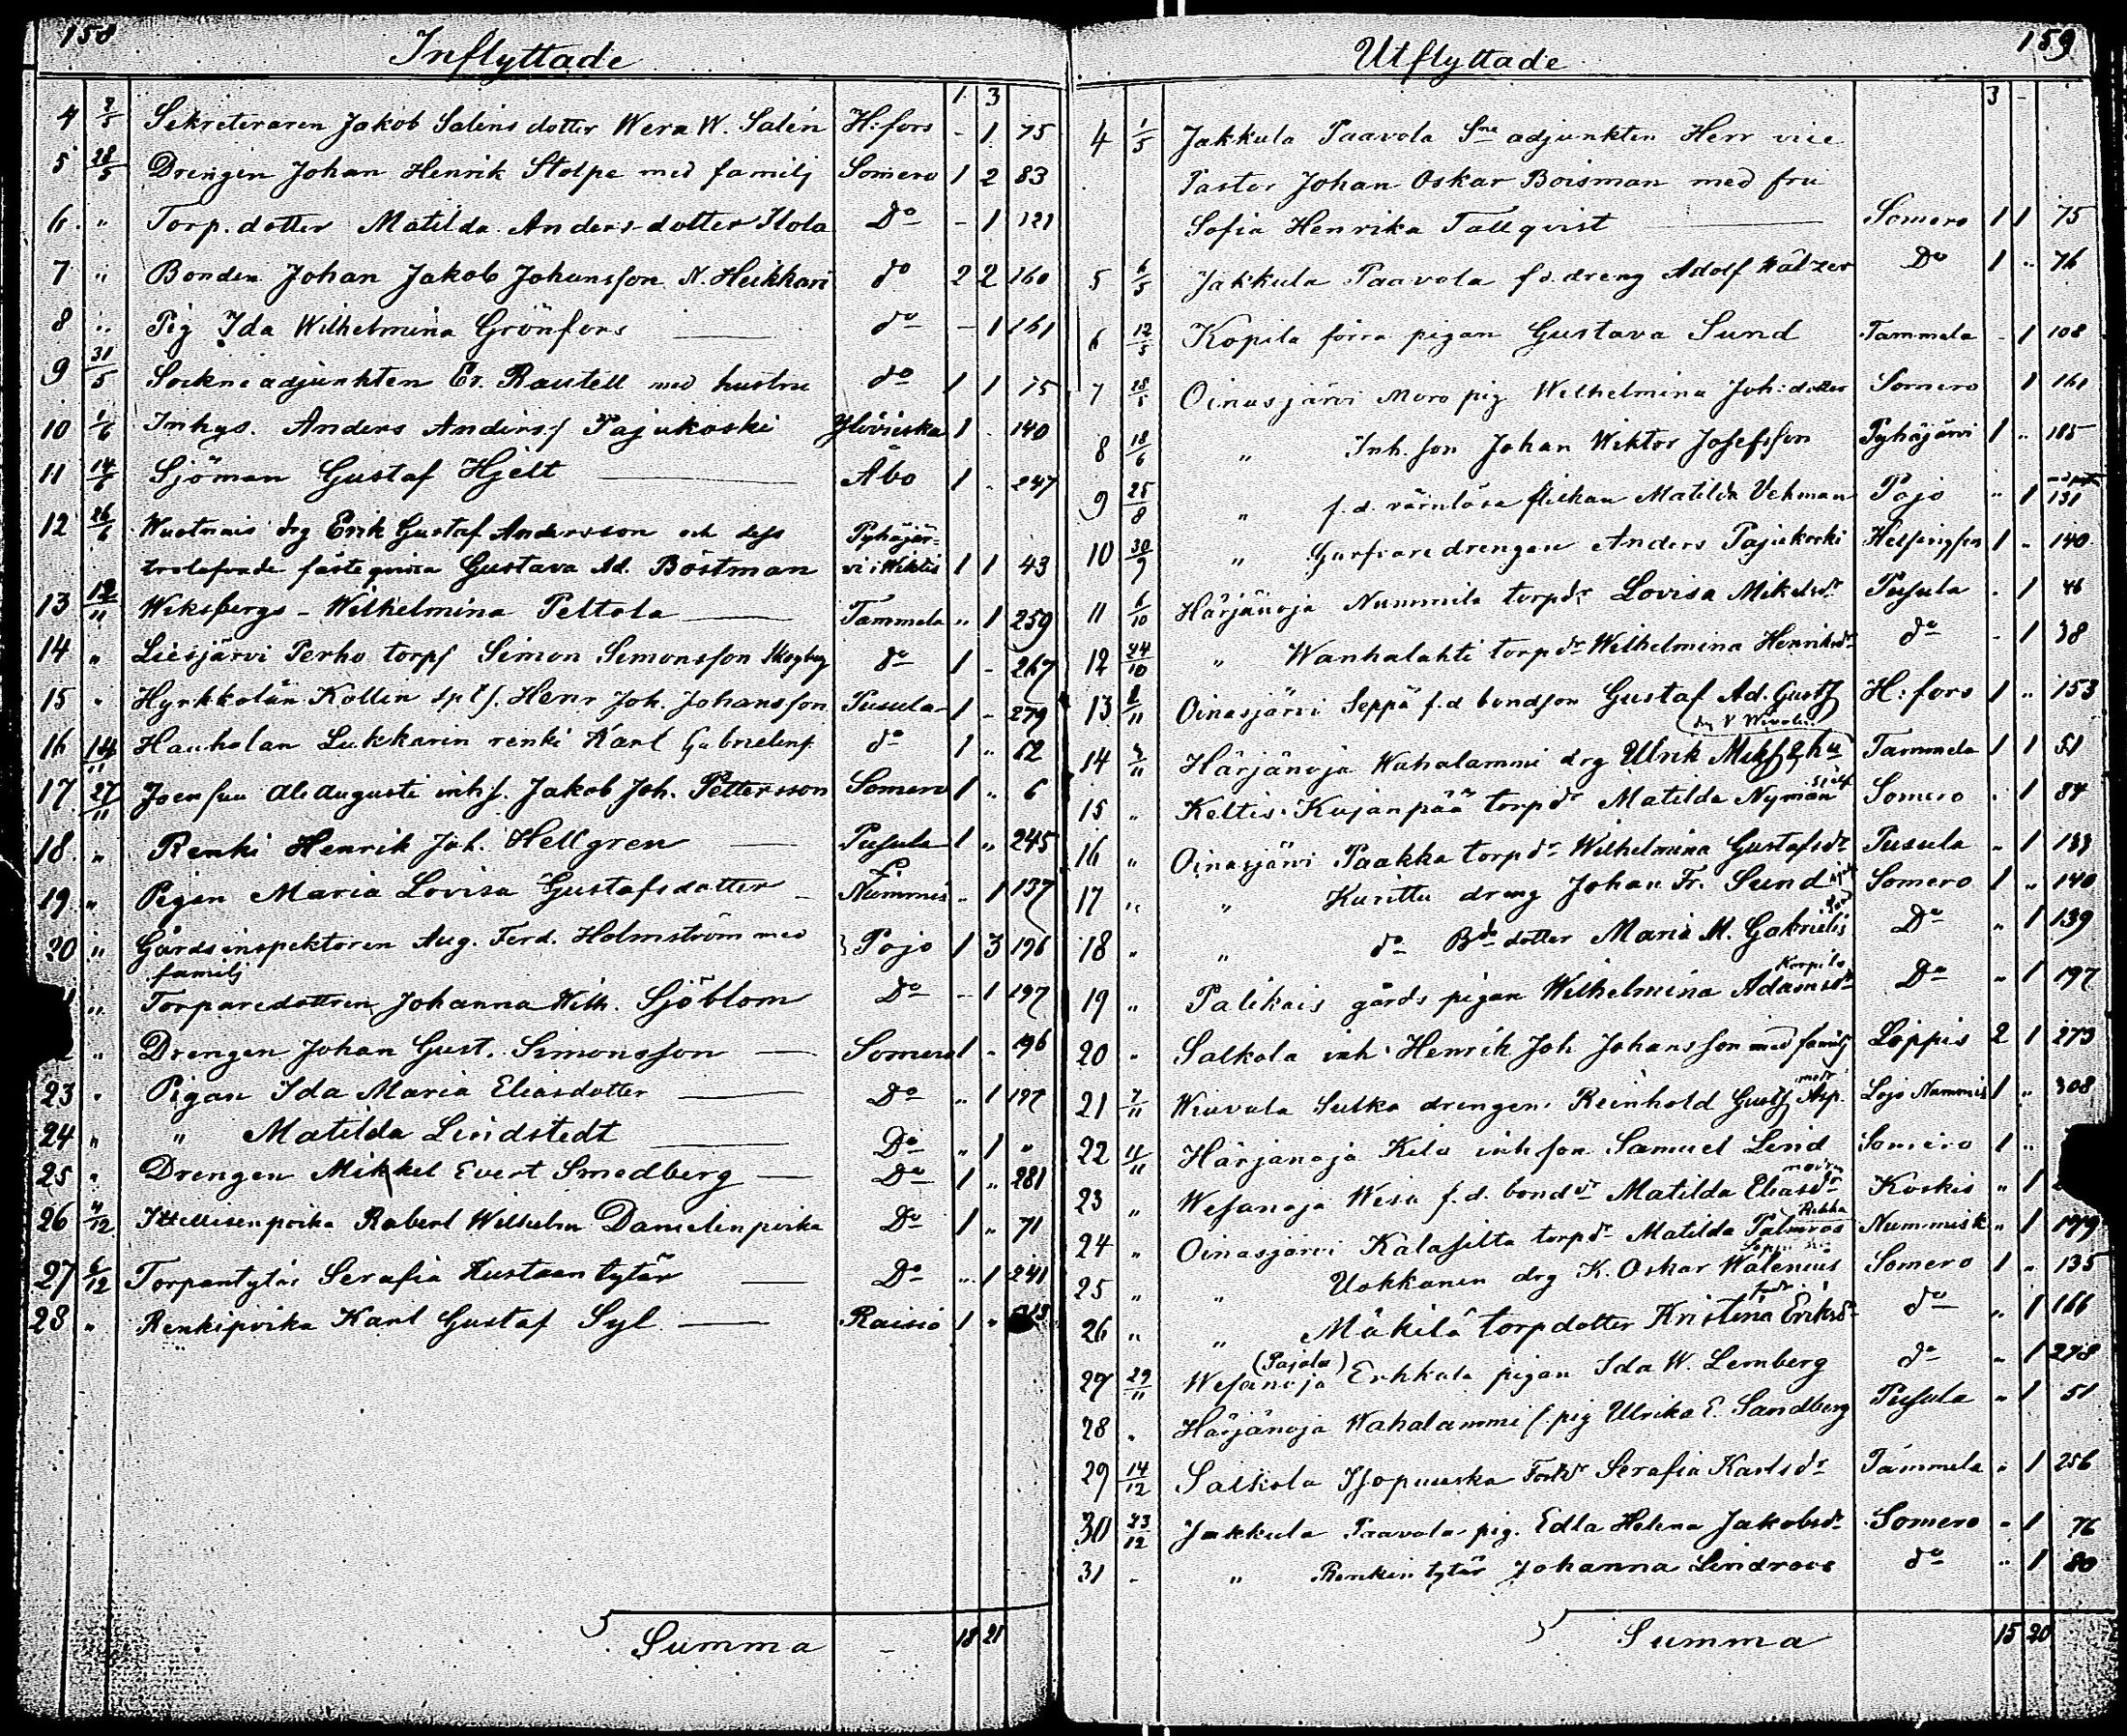 158
Inflyttade
1 3
4 7/5 Sekreteraren Jakob Salens dotter Wera W. Salén H:fors - 1 75
5 28/5 Drengen Johan Henrik Stolpe med familj Somero 1 2 83
6. " Torp. dotter Matilda Anders-dotter Ilola Do - 1 121
7 " Bonden Johan Jakob Johansson N. Heikkari do 2 2 160
8 " Pig Ida Wilhelmina Grönfors do - 1 161
9 31/5 Sockneadjunkten Er. Rautell med hustru do 1 1 75
10 1/6 Inhys. Anders Anderss Pajukoski Ylivieska 1 - 140
11 14/6 Sjöman Gustaf Hjelt Åbo 1 - 247
12 26/6 drg Erik Gustaf Andersson och dess Pyhäjär=
trolofvade fästeqvinna Gustava Ad. Böstman vi i Wiktis 1 1 43
13 12/11 Wiksbergs - Wilhelmina Peltola Tammela " 1 259
14 " Liesjärvi Perho torps Simon Simonsson Skogberg do 1 - 267
15 " Hyrkkölän Kollin Henr Joh. Johansson Pusula 1 - 279
16 14/11 Hauholan Lukkarin renki Karl Gabrielins. do 1 " 62
17 27/11 Joensuu Ali Augusti inhs. Jakob Joh. Pettersson Somero 1 " 6
18. " Renki Henrik Joh. Hellgren Pusula 1 " 245
19 " Pigan Maria Lovisa Gustafsdotter - Nummis " 1 137
20 " Gårdsinspektoren Aug. Ferd. Holmström med } Pojo 1 3 196
familj
" Torparedottren Johanna Wilh. Sjöblom Do - 1 197
" Drengen Johan Gust. Simonsson Somero 1 " 196
23 " Pigan Ida Maria Eliasdotter Do " 1 197
24 " " Matilda Lindstedt Do " 1 "
25 " Drengen Mikkel Evert Smedberg Do 1 " 281
26 4/12 Itsellisenpoika Robert Wilhelm Danielinpoika Do 1 " 71
27 6/12 Torparintytär Serafia Kustaantytär Do " 1 241
28 " Renkipoika Karl Gustaf Syl Raisio 1 "
Summa - 18 21
159
Utflyttade
3 -
4 1/5 Jakkula Paavola Sne adjunkten Herr vice
Pastor Johan Oskar Boisman med fru
Sofia Henrika Tallqvist Somero 1 1 75
5 6/5 Jakkula Paavola f.d. dreng Adolf Wälzer Do 1 " 76
6 12/5 Kopila förra pigan Gustava Sund Tammela - 1 108
7 18/5 Oinasjärvi Moro pig Wilhelmina Joh:dotter Somero 1 161
8 18/6 " Inh. son Johan Wiktor Josefsson Pyhäjärvi 1 " 185
9 25/8 " f.d. värnlösa flickan Matilda Vehman Pojo " 1 131
10 30/9 " Garfvaredrengen Anders Pajukoski Helsingfors 1 " 140
11 6/10 Härjänoja Nummila torpdr Lovisa Mikelsdr Pusula - 1 46
12 24/10 " Wanhalahti torpdr Wilhelmina Henriksdr do - 1 38
13 2/11 Oinasjärvi Seppä f.d bondson Gustaf Ad. Gusts H:fors 1 " 153
14 3/11 Härjänoja Wahalammi drg Ulrik Mikss & hu Tammela 1 1 51
15 " Keltis Kujanpää torpdr Matilda Nyman Somero " 1 84
16 " Oinasjärvi Paakka torpdr Wilhelmina Gustafsdr Pusula " 1 133
17 " " Kurittu dreng Johan Fr. Sund Somero 1 " 140
18 " " do Bde dotter Maria M. Gabrielis Do " 1 139
Korpila
19 " Palikais gårds pigan Wilhelmina Adamsdr Do " 1 197
20 " Salkola inh. Henrik Joh Johansson med familj Loppis 2 1 273
21 7/11 Wiuvala Sulka drengen Reinhold Gusts Asp. Lojo Nummis 1 " 308
22 11/11 Härjänoja Kilo inh son Samuel Lind Somero 1 "
23 " Wesanoja Wesa f.d. bonddr Matilda Eliasdr Koskis " 1
24 " Oinasjärvi Kalasilta torpdr Matilda Palmros Nummisk " 1 179
25 " " Uokkanen drg K. Oskar Walenius Somero 1 " 135
26 " " Mäkilä torpdotter Kristina Eriksdr do " 1 166
(Pajala)
27 29/11 Wesanoja Erkkola pigan Ida W. Lemberg do " 1 278
28 " Härjänoja Wahalammi f. pig Ulrika E. Sandberg Pusula " 1 51
29 14/12 Salkola Serafia Karlsdr Tammela " 1 256
30 23/12 Jakkula Paavola pig. Edla Helena Jakobsdr Somero " 1 76
31 - " Renkin tytär Johanna Lindroos do " 1 80
Summa 15 20